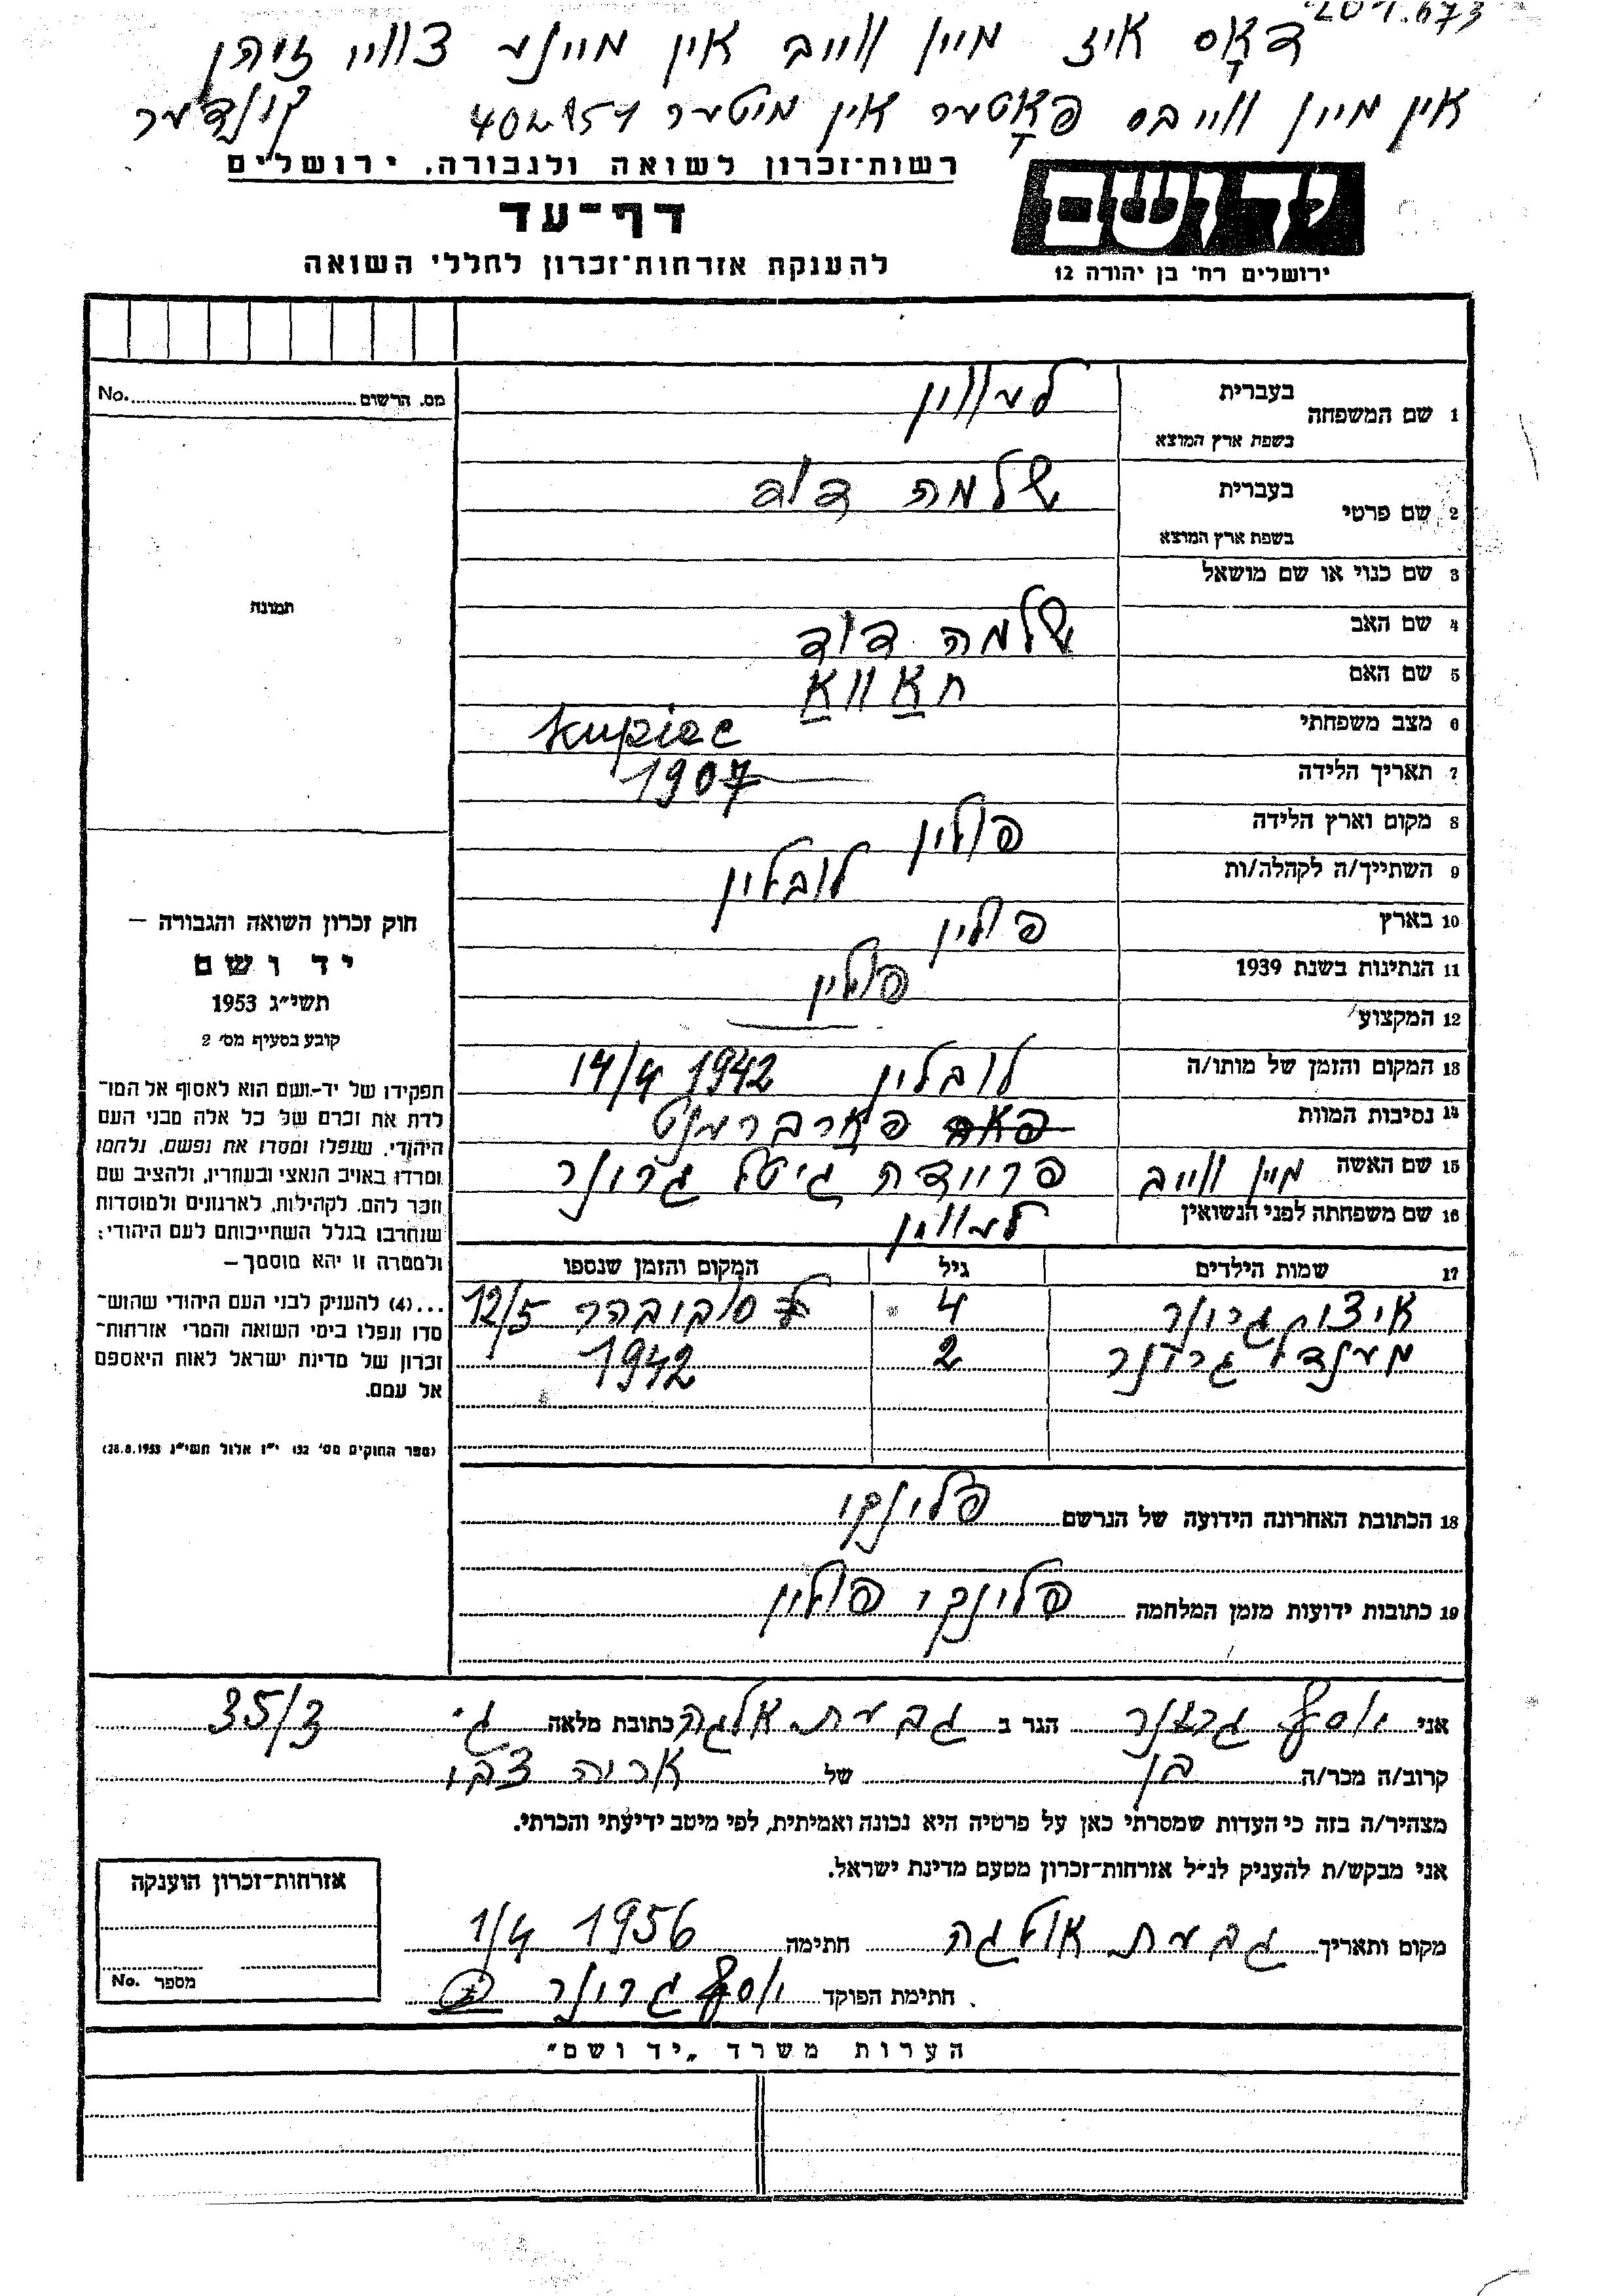 201.673
דאָס איז מיין ווייב אין מיינע צוויי
אין מיין ווייבס פאָטער אין מיטער
קינדער
יד ושם
ירושלים רח׳ בן יהודה 12
רשות־זכרון לשואה ולגבורה, ירושלים
דף־עד
להענקת אזרחות־זכרון לחללי השואה
מס. הרשום No.
תמונה
1 שם המשפחה
בעברית לעווין
בשפת ארץ המוצא
2 שם פרטי
בעברית שלמה דוד
בשפת ארץ המוצא
3 שם כנוי או שם מושאל
4 שם האב שלמה דוד
5 שם האם חאַוואַ
6 מצב משפחתי kupiec
7 תאריך הלידה 1907
8 מקום וארץ הלידה פולין
9 השתייך/ה לקהלה/ות לובלין
10 בארץ פולין
11 הנתינות בשנת 1939 פולין
12 המקצוע
13 המקום והזמן של מותו/ה לובלין 14/4 1942
14 נסיבות המוות פארברענט
15 שם האשה מיין ווייב פריידה גיטל גרונר
16 שם משפחתה לפני הנשואין לעווין
17 שמות הילדים גיל המקום והזמן שנספו
איצוק גרונר 4 סובובר 12/5
מענדל גרונר 2 1942
18 הכתובת האחרונה הידועה של הנרשם פלינקי
19 כתובות ידועות מזמן המלחמה פלינקי פולין
חוק זכרון השואה והגבורה —
יד ושם
תשי״ג 1953
קובע בסעיף מס׳ 2
תפקידו של יד־ושם הוא לאסוף אל המו־
לדת את זכרם של כל אלה מבני העם
היהודי, שנפלו ומסרו את נפשם, נלחמו
ומרדו באויב הנאצי ובעוזריו, ולהציב שם
וזכר להם, לקהילות, לארגונים ולמוסדות
שנחרבו בגלל השתייכותם לעם היהודי;
ולמטרה זו יהא מוסמך —
...(4) להעניק לבני העם היהודי שהוש־
מדו ונפלו בימי השואה והמרי אזרחות־
זכרון של מדינת ישראל לאות היאספם
אל עמם.
(ספר החוקים מס׳ 132 י״ז אלול תשי״ג 28.8.1953)
אני יוסף גרונר הגר ב גבעת אלגה כתובת מלאה ג׳ 35/3
קרוב/ה מכר/ה בן של אריה צבי
מצהיר/ה בזה כי העדות שמסרתי כאן על פרטיה היא נכונה ואמיתית, לפי מיטב ידיעתי והכרתי.
אני מבקש/ת להעניק לנ״ל אזרחות־זכרון מטעם מדינת ישראל.
מקום ותאריך גבעת אולגה חתימה 1/4 1956
חתימת הפוקד יוסף גרונר
אזרחות־זכרון הוענקה
מספר No.
הערות משרד „יד ושם״